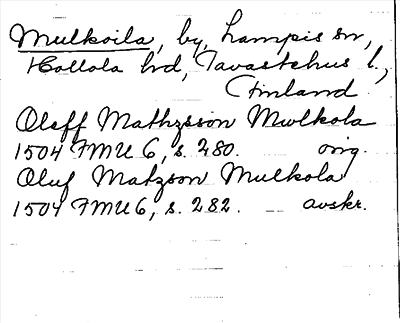 Mulkoila, by, Lampis sn,
Hollola hd, Tavastehus l.,
Finland
Oleff Mathzsson Mwlkola
1504 FMU 6, s. 280. orig.
Oluf Matzson Mulkola
1504 FMU 6, s. 282. avskr.